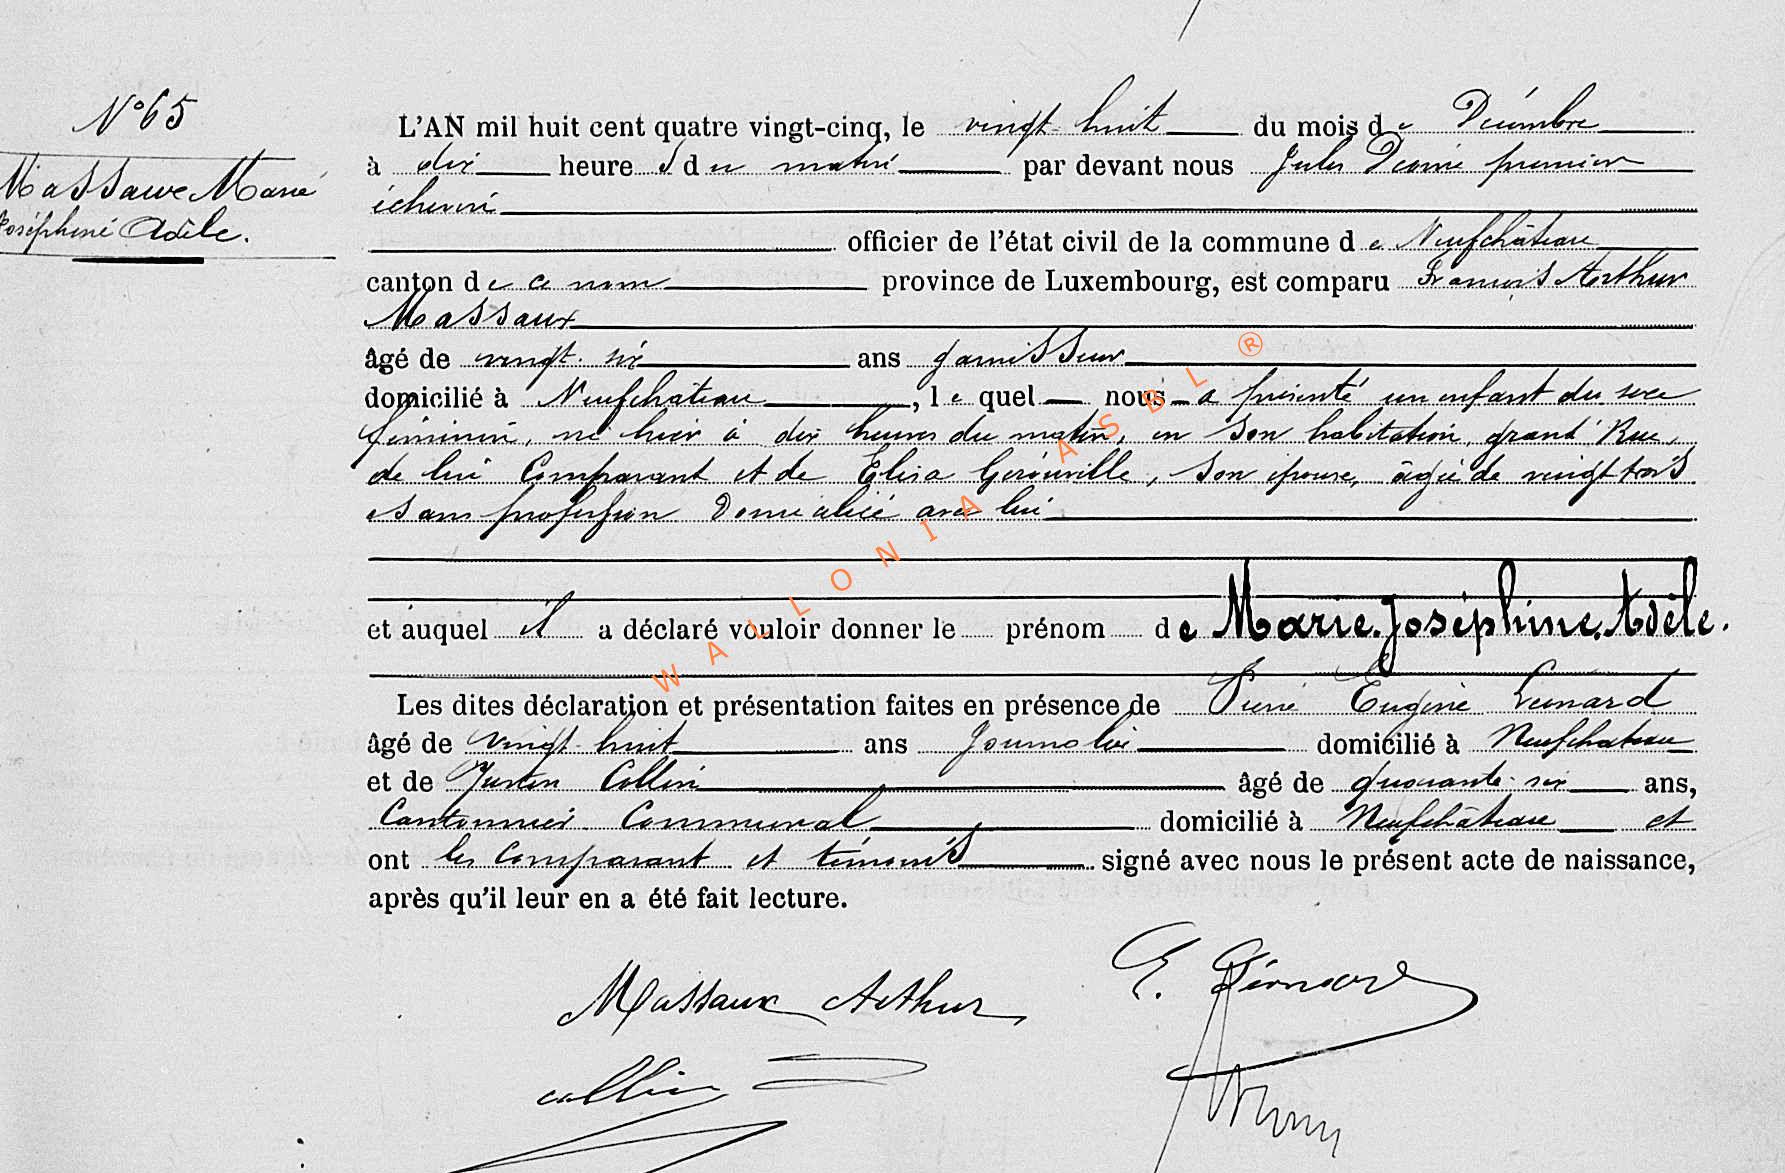 N° 65
Massaux Marie
Joséphine Adèle.
L'AN mil huit cent quatre vingt-cinq, le vingt-huit du mois de Décembre
à dix heures du matin par devant nous Jules premier
échevin
officier de l'état civil de la commune de Neufchâteau
canton de ce nom province de Luxembourg, est comparu François Arthur
Massaux
âgé de vingt-six ans garnisseur
domicilié à Neufchâteau, lequel nous a présenté un enfant du sexe
féminin, né hier à dix heures du matin, en son habitation, grand'Rue,
de lui Comparant et de Elisa Gérouville, son épouse, âgée de vingt trois
sans profession Domicilié avec lui
et auquel il a déclaré vouloir donner le prénom de Marie Joséphine Adèle.
Les dites déclaration et présentation faites en présence de Pierre Eugène
âgé de vingt-huit ans Journalier domicilié à Neufchateau
et de Justin Collin âgé de quarante-six ans,
Cantonnier Communal domicilié à Neufchâteau et
ont les Comparant et témoins signé avec nous le présent acte de naissance,
après qu'il leur en a été fait lecture.
Massaux Arthur
Collin
WALLONIA ASBL ®